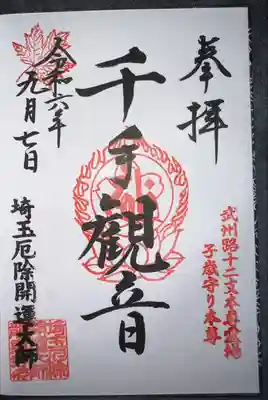 奉拝
武州路十二支本尊霊場
子歳守り本尊
千手観音
令和六年
元月七日
埼玉厄除開運大師